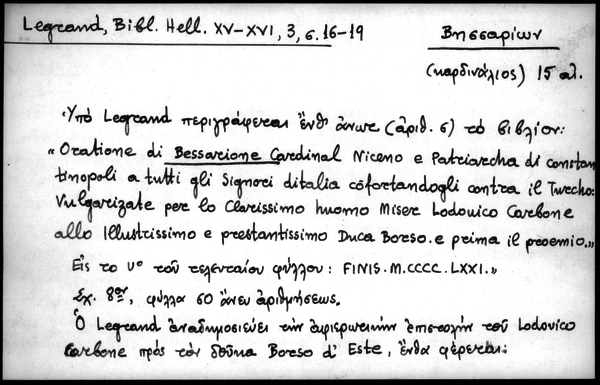 Legrand, Bibl. Hell. XV-XVI, 3, σ. 16-19
Βησσαρίων
(καρδινάλιος) 15 αἰ.
Ὑπὸ Legrand περιγράφεται ἔνθ' ἄνωτ. (ἀριθ. 6) τὸ βιβλίον:
«Oratione di Bessarione Cardinal Niceno e Patriarcha di constan
tinopoli a tutti gli Signori ditalia cōfortandogli contra il Turcho:
Vulgarizate per lo Clarissimo huomo Miser Lodouico Carbone
allo Illustrissimo e prestantissimo Duca Borso. e prima il proemio.»
Εἰς το vº τοῦ τελευταίου φύλλου: FINIS. M.CCCC. LXXI.»
Σχ. 8ον, φύλλα 60 ἄνευ ἀριθμήσεως.
Ὁ Legrand ἀναδημοσιεύει τὴν ἀφιερωτικὴν ἐπιστολὴν τοῦ Lodovico
Carbone πρὸς τὸν δοῦκα Borso d'Este, ἔνθα φέρεται: